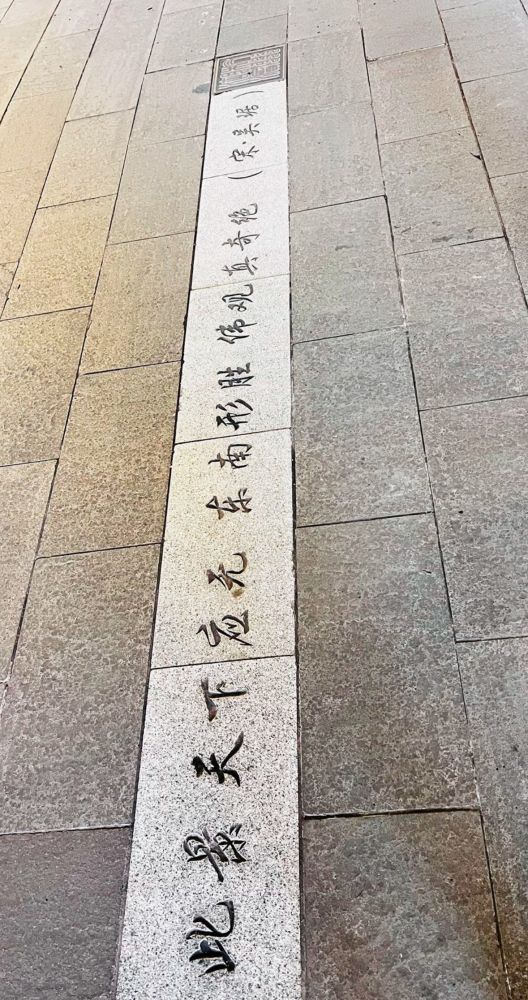 此景天下应无 东南形胜 伟观真奇绝 (宋·吴琚)